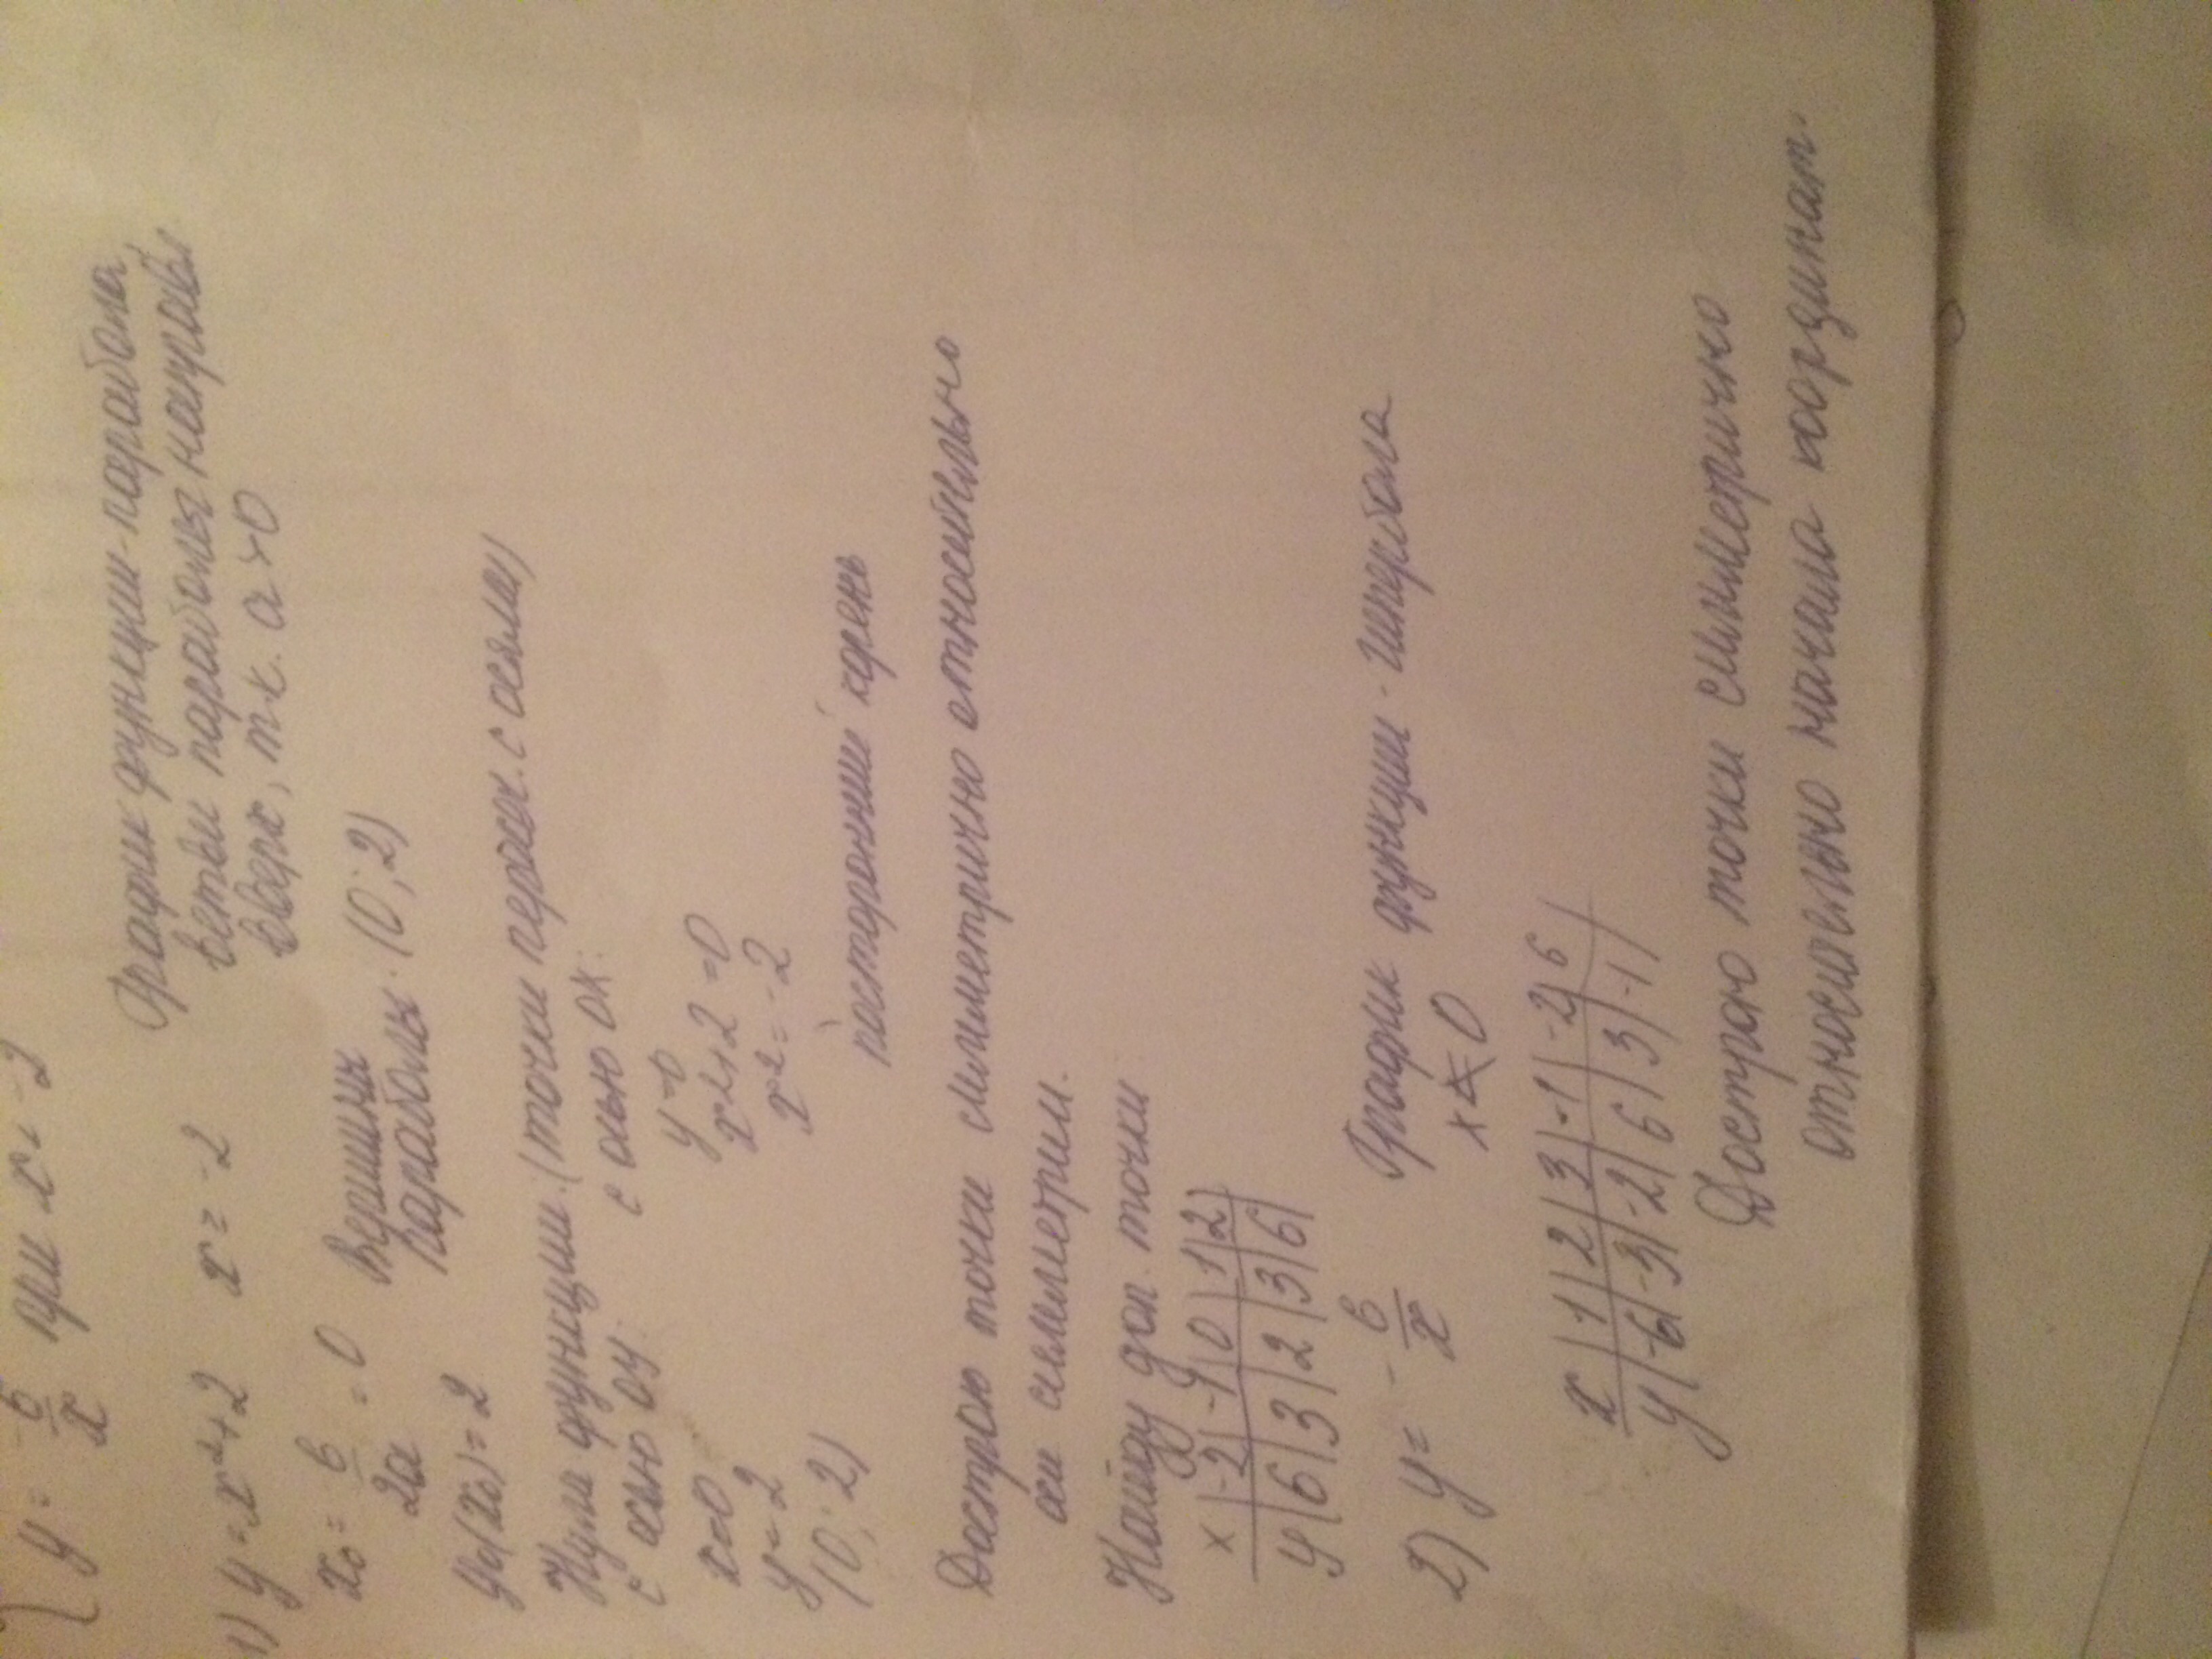 y = - 6/x при x < -2
График функции - парабола,
1) y = x²+2 x = -2 ветви параболы направлены
вверх, т.к. a > 0
x₀ = - b/2a = 0 Вершина параболы. (0; 2)
y₀(x₀) = 2
Нули функции. (точки пересеч. с осями)
с осью оу: с осью ох:
x=0 y=0
y=2 x²+2=0
(0; 2) x²=-2
посторонний корень
Дострою точки симметрично относительно
оси симметрии.
Найду доп. точки
x | -2 | -1 | 0 | 1 | 2 |
y | 6 | 3 | 2 | 3 | 6 |
2) y = - 6/x График функции - гипербола
x ≠ 0
x | 1 | 2 | 3 | -1 | -2 | 6
y | -6 | -3 | -2 | 6 | 3 | -1 |
Дострою точки симметрично
относительно начала координат.